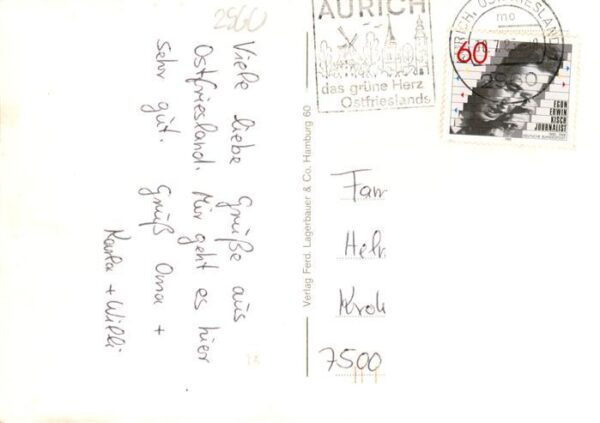 2960
Viele liebe Grüße aus
Ostfriesland. Mir geht es hier
sehr gut. Gruß Oma +
Karla + Willi
Verlag Ferd. Lagerbauer & Co. Hamburg 60
AURICH
das grüne Herz
Ostfrieslands
AURICH, OSTFRIESLAND
mo
2960
60
EGON
ERWIN
KISCH
JOURNALIST
Fam
Helr
Kroh
7500